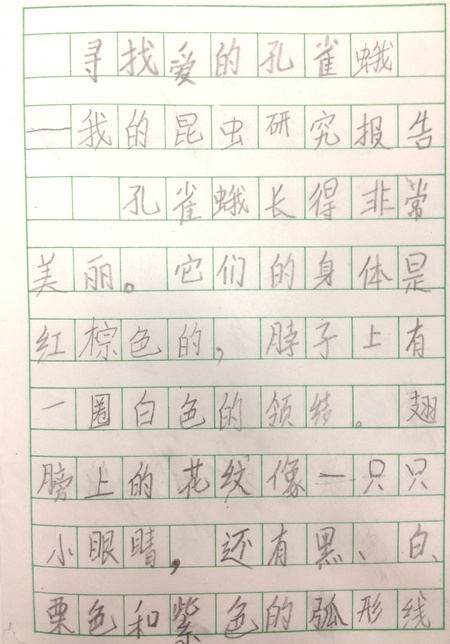 寻找爱的孔雀蛾
——我的昆虫研究报告
孔雀蛾长得非常
美丽。它们的身体是
红棕色的,脖子上有
一圈白色的领结。翅
膀上的花纹像一只只
小眼睛,还有黑、白、
栗色和紫色的弧形线